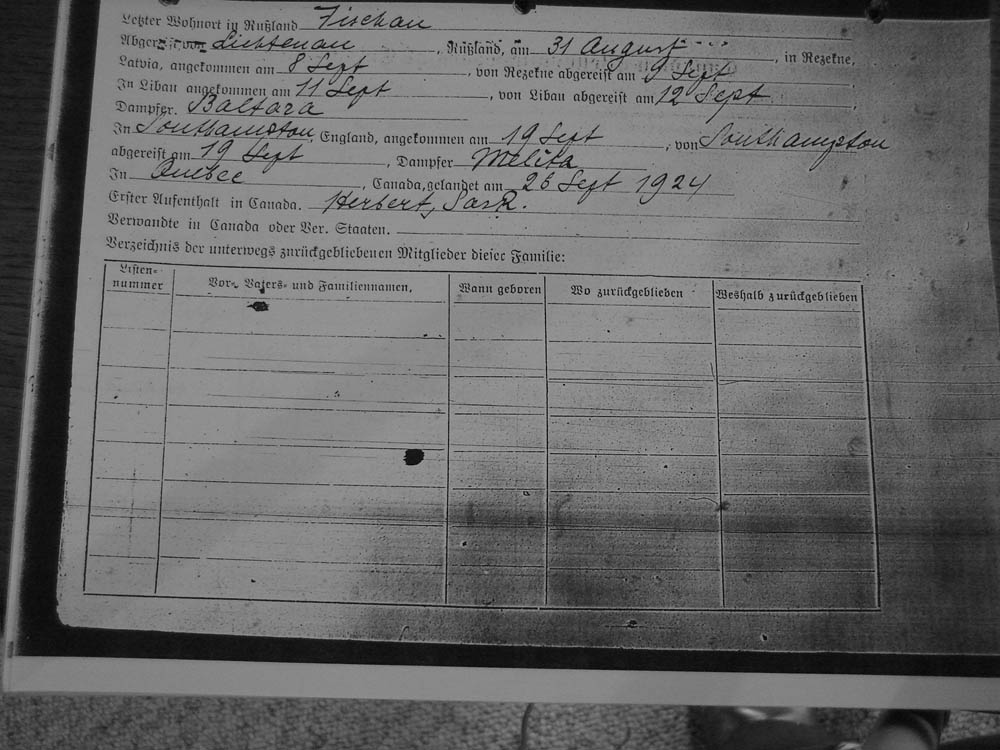 Letzter Wohnort in Rußland Tischau
Abgereist von Lichtenau, Rußland, am 31 August, in Rezekne,
Latvia, angekommen am 8 Sept, von Rezekne abgereist am 9 Sept
In Libau angekommen am 11 Sept, von Libau abgereist am 12 Sept
Dampfer. Baltara
In Southampton, England, angekommen am 19 Sept, von Southampton
abgereist am 19 Sept, Dampfer Melita
In Quebec, Canada, gelandet am 26 Sept 1924
Erster Aufenthalt in Canada. Herbert, Sask.
Verwandte in Canada oder Ver. Staaten.
Verzeichnis der unterwegs zurückgebliebenen Mitglieder dieser Familie:
Listen-
nummer
Vor-, Vaters- und Familiennamen,
Wann geboren
Wo zurückgeblieben
Weshalb zurückgeblieben